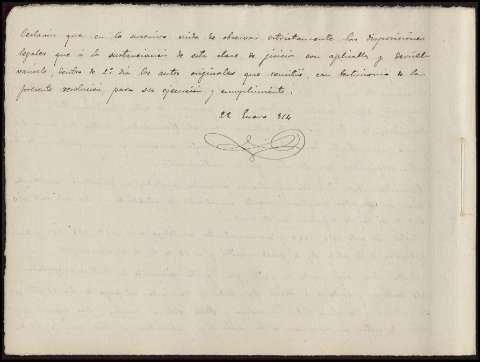 que en lo sucesivo cuide de observar estrictamente las disposiciones
legales que á la sustanciación de esta clase de juicio son aplicables y
dentro de 2º dia los autos originales que remitió, con testimonio de la
presente resolucion, para su ejecución y cumplimiento.
22 Enero 914